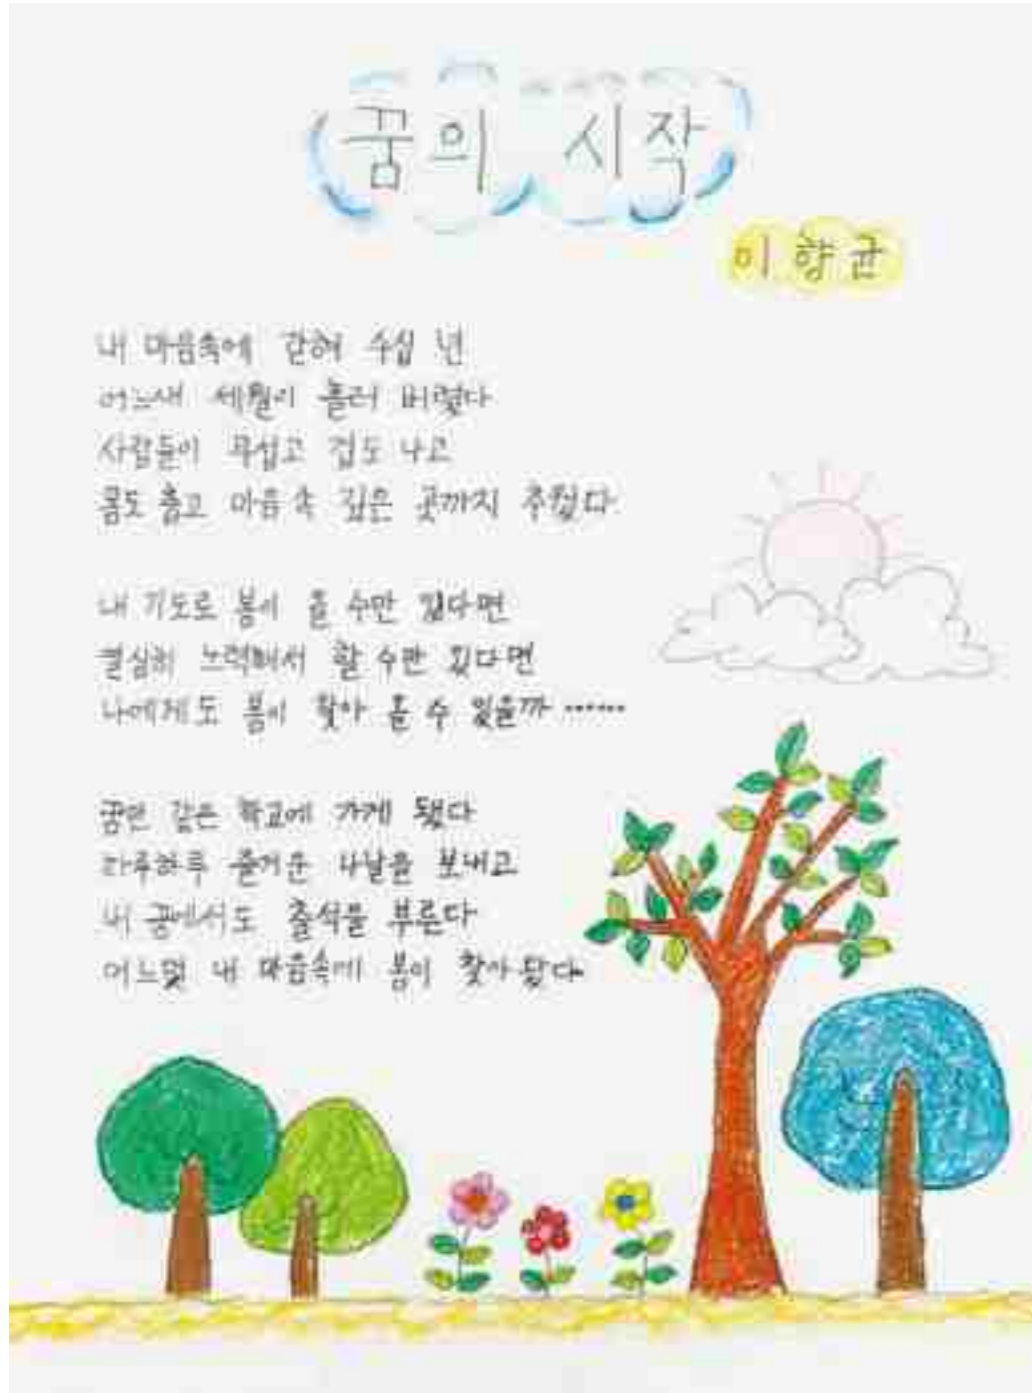 꿈의 시작
이향균
내 마음속에 갇혀 수십 년
어느새 세월이 흘러 버렸다
사람들이 무섭고 겁도 나고
몸도 춥고 마음 속 깊은 곳까지 추웠다
내 기도로 봄이 올 수만 있다면
열심히 노력해서 할 수만 있다면
나에게도 봄이 찾아 올 수 있을까 ⋯⋯
꿈만 같은 학교에 가게 됐다
하루하루 즐거운 나날을 보내고
내 꿈에서도 출석을 부른다
어느덧 내 마음속에 봄이 찾아 왔다